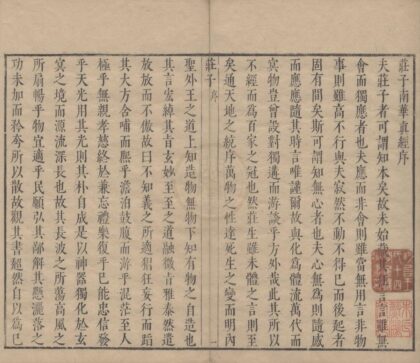 莊子南華真經序
夫莊子者可謂知本矣故未始藏其狂言言雖無
會而獨應者也夫應而非會則雖當無用言非物
事則雖高不行與夫寂然不動不得已而後起者
固有間矣斯可謂知無心者也夫心無為則隨感
而應應隨其時言唯謹爾故與化為體流萬代而
冥物豈曾設對獨遘而游談乎方外哉此其所以
不經而為百家之冠也然莊生雖未體之言則至
矣通天地之統序萬物之性達死生之變而明內
莊子 序
聖外王之道上知造物無物下知有物之自造也
其言宏綽其旨玄妙至至之道融微旨雅泰然遣
放放而不傲故曰不知義之所適猖狂妄行而蹈
其大方含哺而熙乎澹泊鼓腹而游乎混茫至人
極乎無親孝慈終於兼忘禮樂復乎已能忠信發
乎天光用其光則其朴自成是以神器獨化於玄
冥之境而源流深長也故其長波之所蕩高風之
所扇暢乎物宜適乎民願弘其鄙解其懸灑落之
功未加而矜夸所以散故觀其書超然自以為已